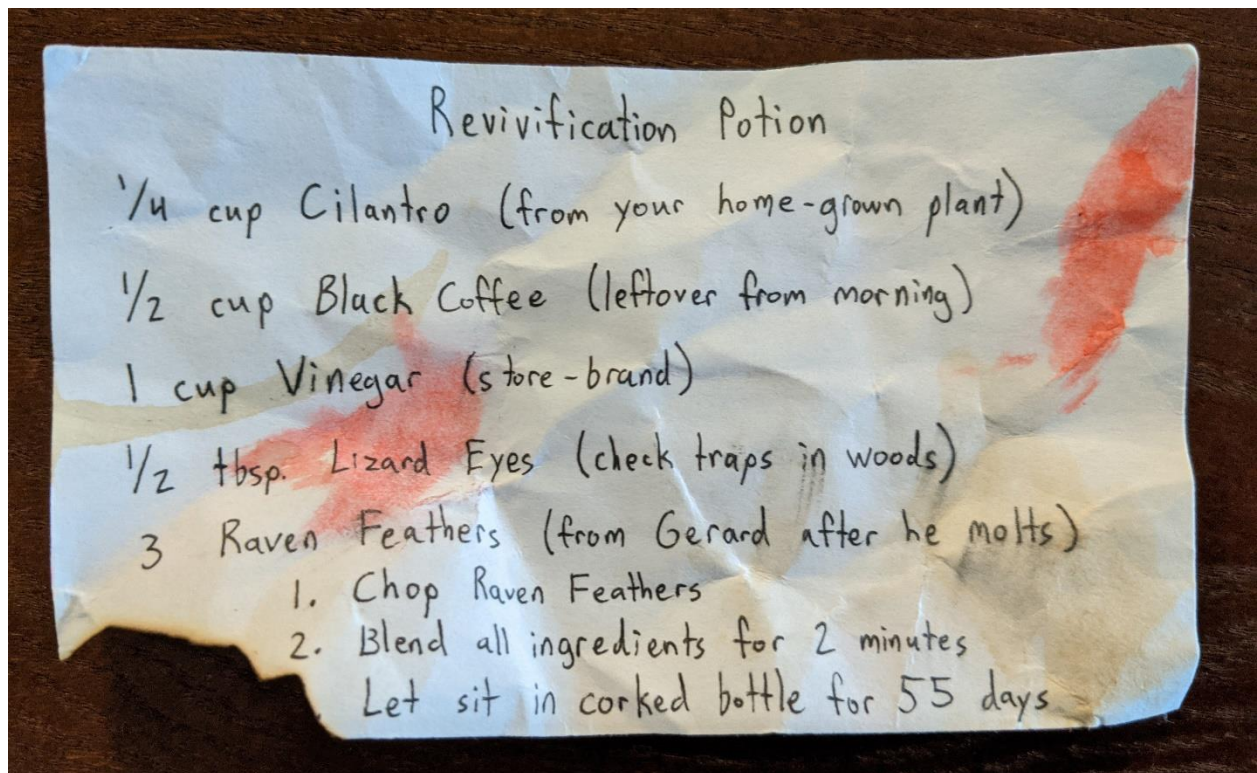 Revivification Potion
1/4 cup Cilantro (from your home-grown plant)
1/2 cup Black Coffee (leftover from morning)
1 cup Vinegar (store-brand)
1/2 tbsp. Lizard Eyes (check traps in woods)
3 Raven Feathers (from Gerard after he molts)
1. Chop Raven Feathers
2. Blend all ingredients for 2 minutes
Let sit in corked bottle for 55 days